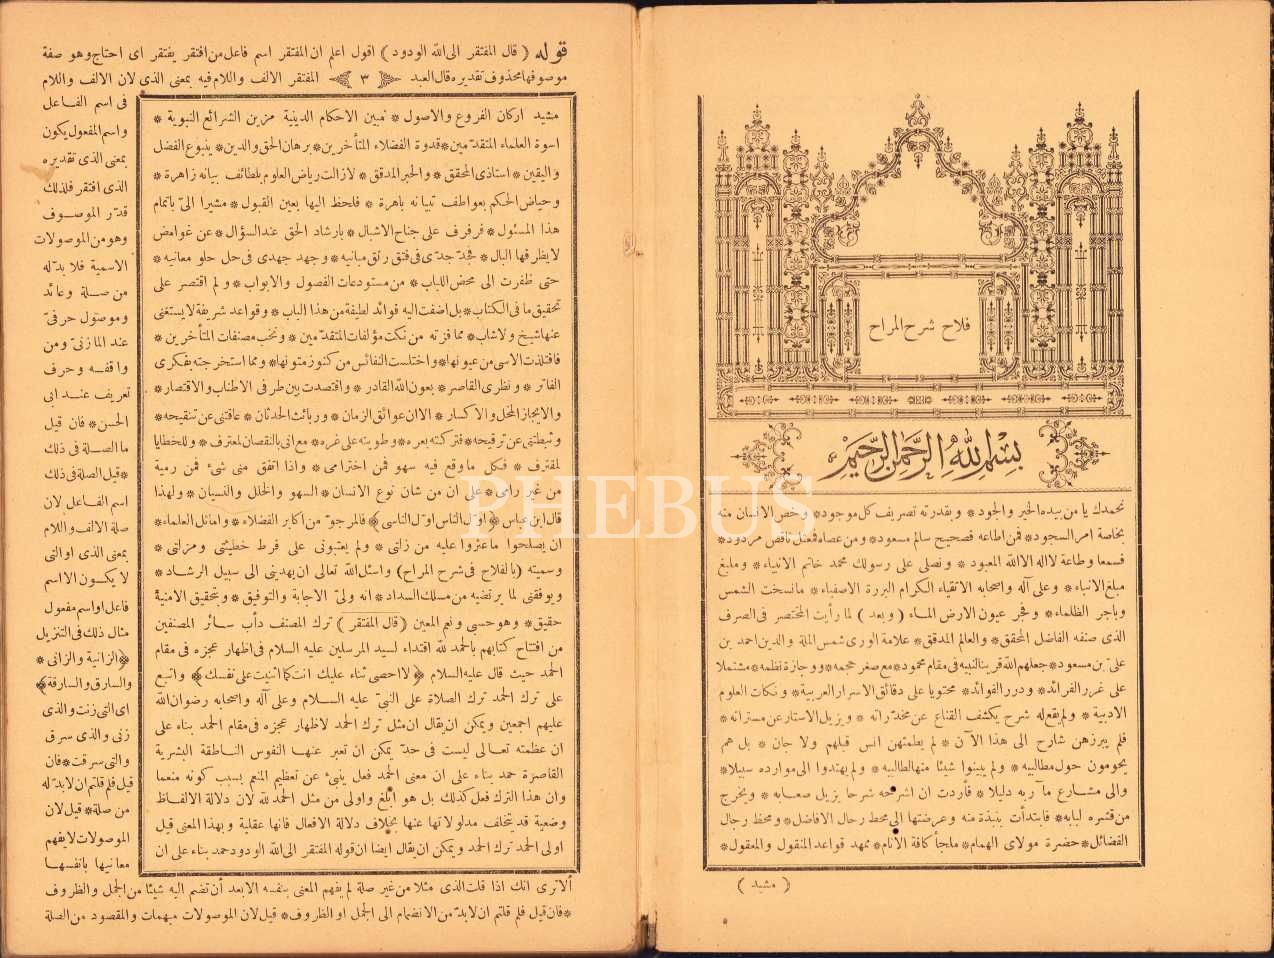 فلاح شرح المراح
بسم الله الرحمن الرحيم
نحمدك يا من بيده الخير والجود * وبقدرته تصريف كل موجود * وخص الانسان منه
بخاصة امر السجود * فمن اطاعه فصحيح سالم مسعود * ومن عصاه فمعتل ناقص مردود *
فسمعا وطاعة لا اله الا الله المعبود * ونصلى على رسولك محمد خاتم الانبياء * ومبلغ
مبلغ الانباء * وعلى آله واصحابه الاتقياء الكرام البررة الاصفياء * مانسخت الشمس
وياجر الظلماء * وفجر عيون الارض الماء ( وبعد ) لما رأيت المختصر فى الصرف
الذى صنفه الفاضل المحقق * والعالم المدقق * علامة الورى شمس الملة والدين احمد بن
على بن مسعود * جعلهم الله قرين النبيه فى مقام محمود * مع صغر حجمه * ووجازة نظمه * مشتملا
على غرر الفرائد * ودرر الفوائد * محتويا على دقائق الاسرار العربية * ونكات العلوم
الادبية * ولم يقع له شرح يكشف القناع عن مخدراته * ويزيل الاستار عن مستراته *
فلم يبرزهن شارح الى هذا الآن * لم يطمثهن انس قبلهم ولا جان * بل هم
يحومون حول مطالبه * ولم يبينوا شيئا منها لطالبيه * ولم يهتدوا الى موارده سبيلا *
والى مشارع مآربه دليلا * فاردت ان اشرحه شرحا يزيل صعابه * ويخرج
من قشره لبابه * فابتدأت بنبذة منه وعرضتها الى محط رحال الافاضل * ومحط رجال
الفضائل * حضرة مولاى الهمام * ملجأ كافة الأنام * ممهد قواعد المنقول والمعقول *
( مشيد )
قوله ( قال المفتقر الى الله الودود ) اقول اعلم ان المفتقر اسم فاعل من افتقر يفتقر اى احتاج وهو صفة
موصوفها محذوف تقديره قال العبد ٣ المفتقر الالف واللام فيه بمعنى الذى لان الالف واللام
فى اسم الفاعل
واسم المفعول يكون
بمعنى الذى تقديره
الذى افتقر فلذلك
قدر الموصوف
وهو من الموصولات
الاسمية فلا بد له
من صلة وعائد
وموصول حرفى
عند المازنى ومن
واقفه وحرف
تعريف عند ابى
الحسن * فان قيل
ما الصلة فى ذلك
* قيل الصلة فى ذلك
اسم الفاعل لان
صلة الالف واللام
بمعنى الذى او التى
لا يكون الا اسم
فاعل او اسم مفعول
مثال ذلك فى التنزيل
﴿ الزانية والزانى *
والسارق والسارقة ﴾
اى التى زنت والذى
زنى والذى سرق
والتى سرقت * فان
قيل فلم قلتم ان لابد له
من صلة * قيل لان
الموصولات لا يفهم
معانيها بانفسها
الا ترى انك اذا قلت الذى مثلا من غير صلة لم يفهم المعنى بنفسه الا بعد أن تضم اليه شيئا من الجمل والظروف
* فان قيل فلم قلتم ان لابد من الانضمام الى الجمل او الظروف * قيل لان الموصولات مبهمات والمقصود من الصلة
مشيد اركان الفروع والاصول * مبين الاحكام الدينية مزين الشرائع النبوية *
اسوة العلماء المتقدمين * قدوة الفضلاء المتأخرين * برهان الحق والدين * ينبوع الفضل
واليقين * استاذى المحقق * والحبر المدقق * لازالت رياض العلوم بلطائف بيانه زاهرة *
وحياض الحكم بعواطف تبيانه باهرة * فلحظ اليها بعين القبول * مشيرا الى باتمام
هذا المسئول * فرفرف على جناح الاشبال * بارشاد الحق عند السؤال * عن غوامض
لا يظر قها البال * فجد جدى فى فتق رتق مبانيه * وجهد جهدى فى حل حلو معانيه *
حتى ظفرت الى محض اللباب * من مستودعات الفصول والابواب * ولم اقتصر على
تحقيق ما فى الكتاب * بل اضفت اليه فوائد لطيفة من هذا الباب * وقواعد شريفة لا يستغنى
عنها شيخ ولا شاب * مما فزته من نكت مؤلفات المتقدمين * ونخب مصنفات المتأخرين *
فافتلذت الاسى من عيونها * واختلست النفائس من كنوز متونها * ومما استخرجته بفكرى
الفاتر * ونظرى القاصر * بعون الله القادر * واقتصدت بين طرفى الاطناب والاقتصار *
والايجاز المخل والاكسار * الا ان عوائق الزمان * وربائث الحدثان * عاقتنى عن تنقيحه *
وثبطتنى عن ترقيحه * فتركته بعره * وطويته على غره * مع انى بالنقصان لمعترف * وللخطايا
لمقترف * فكل ما وقع فيه سهو فمن اخترامى * واذا اتفق منى شئ فمن رمية
من غير رامى * على ان من شان نوع الانسان * السهو والخلل والنسيان * ولهذا
قال ابن عباس ﴿ اول الناس اول الناسى ﴾ فالمرجو من اكابر الفضلاء * وامائل العلماء *
ان يصلحوا ما عثروا عليه من زلتى * ولم يعتبونى على فرط خطيئتى ومزلتى *
وسميته ( بالفلاح فى شرح المراح ) واسئل الله تعالى ان يهدينى الى سبيل الرشاد *
ويوفقنى لما يرتضيه من مسلك السداد * انه ولى الاجابة والتوفيق * وبتحقيق الامنية
حقيق * وهو حسبى ونعم المعين ( قال المفتقر ) ترك المصنف دأب سائر المصنفين
من افتتاح كتابهم بالحمد لله اقتداء لسيد المرسلين عليه السلام فى اظهار عجزه فى مقام
الحمد حيث قال عليه السلام ﴿ لا احصى ثناء عليك انت كما اثنيت على نفسك ﴾ واتبع
على ترك الحمد ترك الصلاة على النبى عليه السلام وعلى آله واصحابه رضوان الله
عليهم اجمعين ويمكن ان يقال ان مثل ترك الحمد لاظهار عجزه فى مقام الحمد بناء على
ان عظمته تعالى ليست فى حد يمكن ان تعبر عنها النفوس الناطقة البشرية
القاصرة حمد بناء على ان معنى الحمد فعل ينبئ عن تعظيم المنعم بسبب كونه منعما
وان هذا الترك فعل كذلك بل هو ابلغ واولى من مثل الحمد لله لان دلالة الالفاظ
وضعية قد يتخلف مدلولاتها عنها بخلاف دلالة الافعال فانها عقلية وبهذا المعنى قيل
اولى الحمد ترك الحمد ويمكن ان يقال ايضا ان قوله المفتقر الى الله الودود حمد بناء على ان
PHEBUS